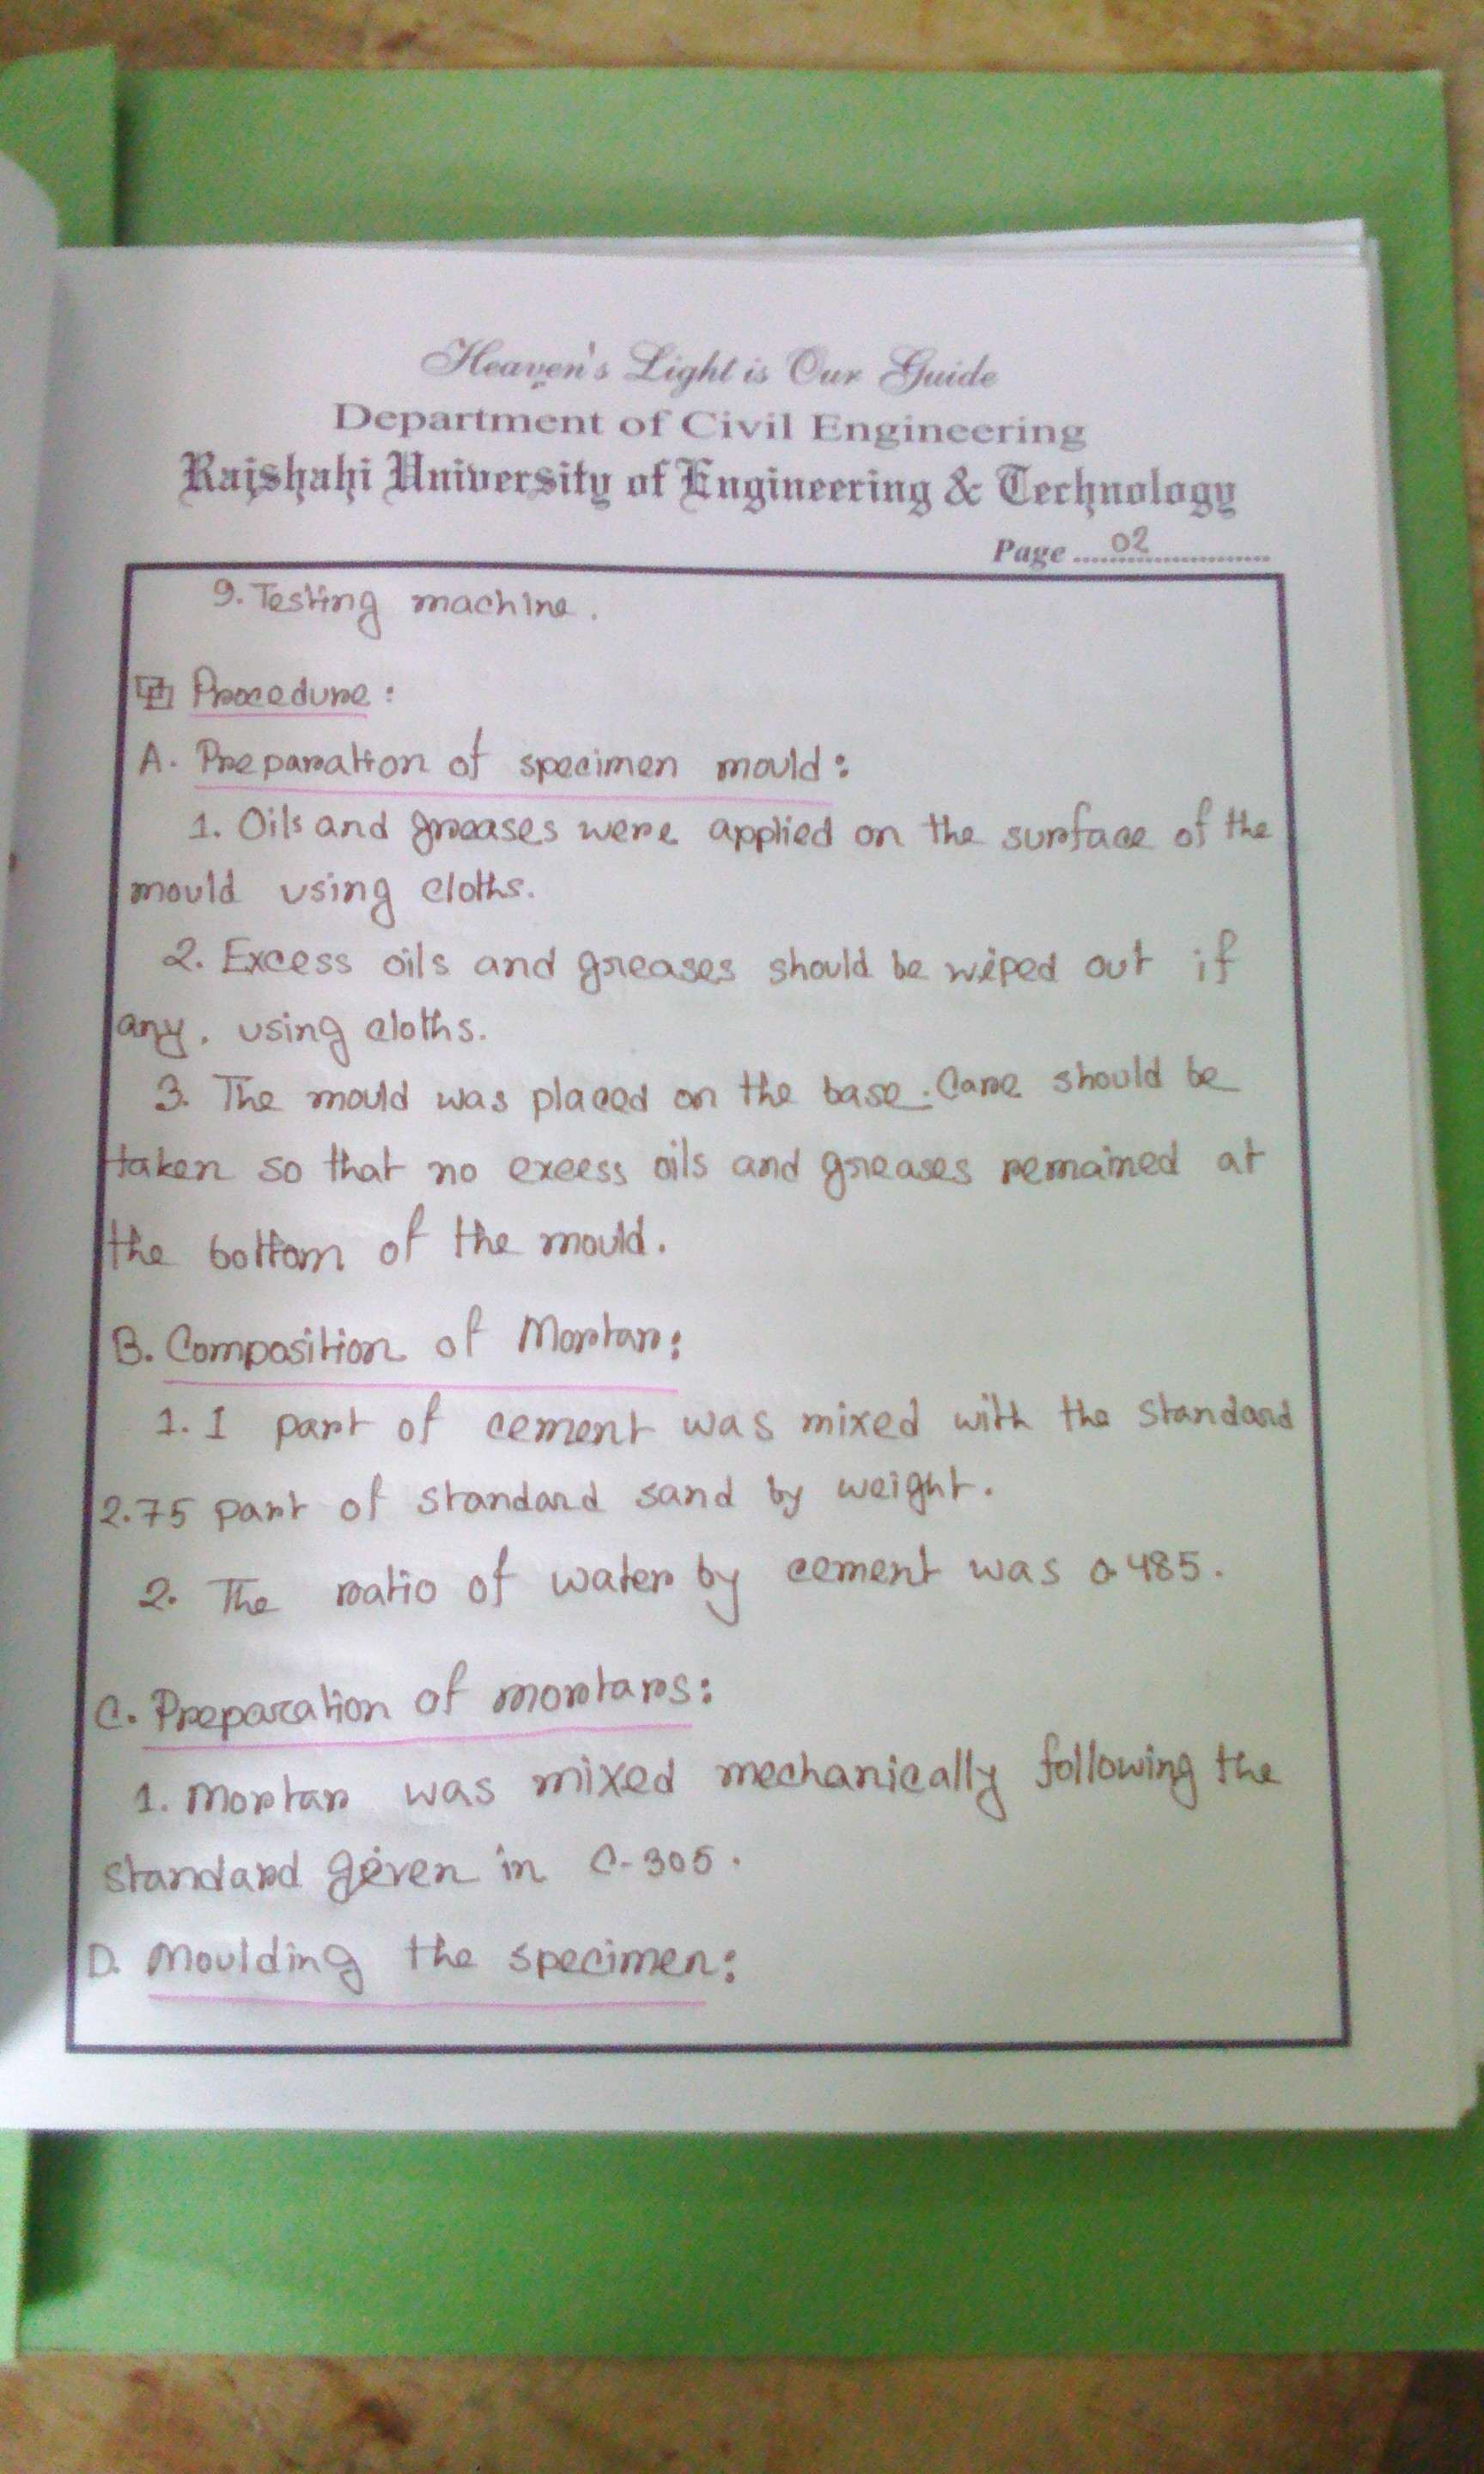 Heaven's Light is Our Guide
Department of Civil Engineering
Rajshahi University of Engineering & Technology
Page ....02....................
9. Testing machine.
Procedure :
A. Preparation of specimen mould :
1. Oils and greases were applied on the surface of the
mould using cloths.
2. Excess oils and greases should be wiped out if
any, using cloths.
3. The mould was placed on the base. Care should be
taken so that no excess oils and greases remained at
the bottom of the mould.
B. Composition of Mortar:
1. 1 part of cement was mixed with the standard
2.75 part of standard sand by weight.
2. The ratio of water by cement was 0.485.
C. Preparation of mortars:
1. Mortar was mixed mechanically following the
standard given in C-305.
D. Moulding the specimen: